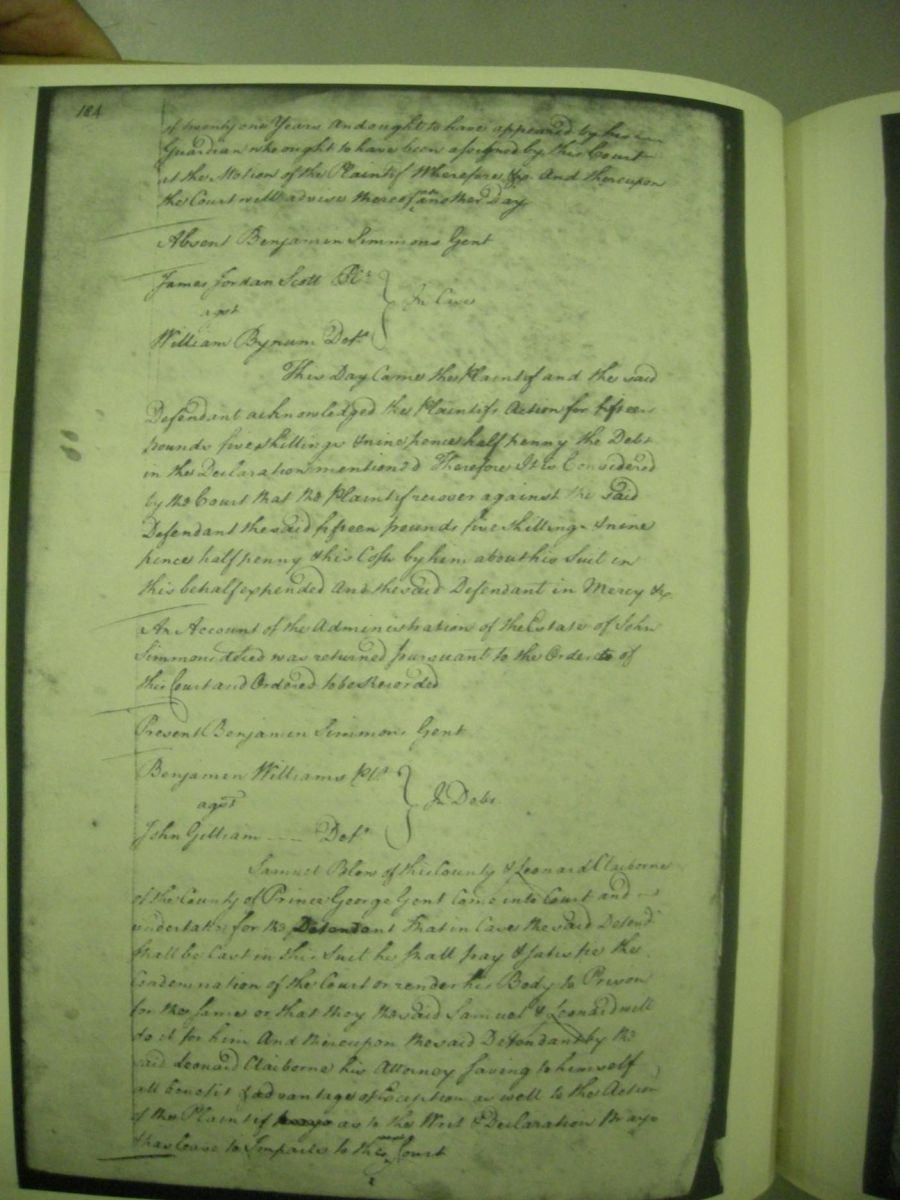 184
of twenty one Years And ought to have appeared by his
Guardian who ought to have been assigned by this Court
at the Motion of the Plaintif Wherefore &c. And thereupon
the Court will advise thereof another Day
Absent Benjamin Simmons Gent
James Jordan Scott Plt.
agst
William Bynum Deft.
In Case
This Day Came the Plaintif and the said
Defendant acknowledged the Plaintifs Action for fifteen
pounds five shillings & nine pence half penny the Debt
in the Declaration mention'd Therefore It is Considered
by the Court that the Plaintif recover against the said
Defendant the said fifteen pounds five shillings & nine
pence half penny & his Costs by him about his Suit in
this behalf expended And the said Defendant in Mercy &c
An Account of the Administration of the Estate of John
Simmons deced was returned pursuant to the Order of
this Court and Ordered to be Recorded
Present Benjamin Simmons Gent
Benjamin Williams Plt.
agst
John Gilliam Deft.
In Debt
Samuel Blow of this County & Leonard Claiborne
of the County of Prince George Gent Came into Court and
undertake for the Defendant That in Case the said Defend
shall be Cast in this Suit he shall pay & satisfie the
Condemnation of the Court or render his Body to Prison
for the same or that they the said Samuel & Leonard will
do it for him And thereupon the said Defendant by the
said Leonard Claiborne his Attorney saving to himself
all benefit & advantage of Exception as well to the Action
of the Plaintif as to the Writ & Declaration Prays
& has leave to Imparle to the next Court